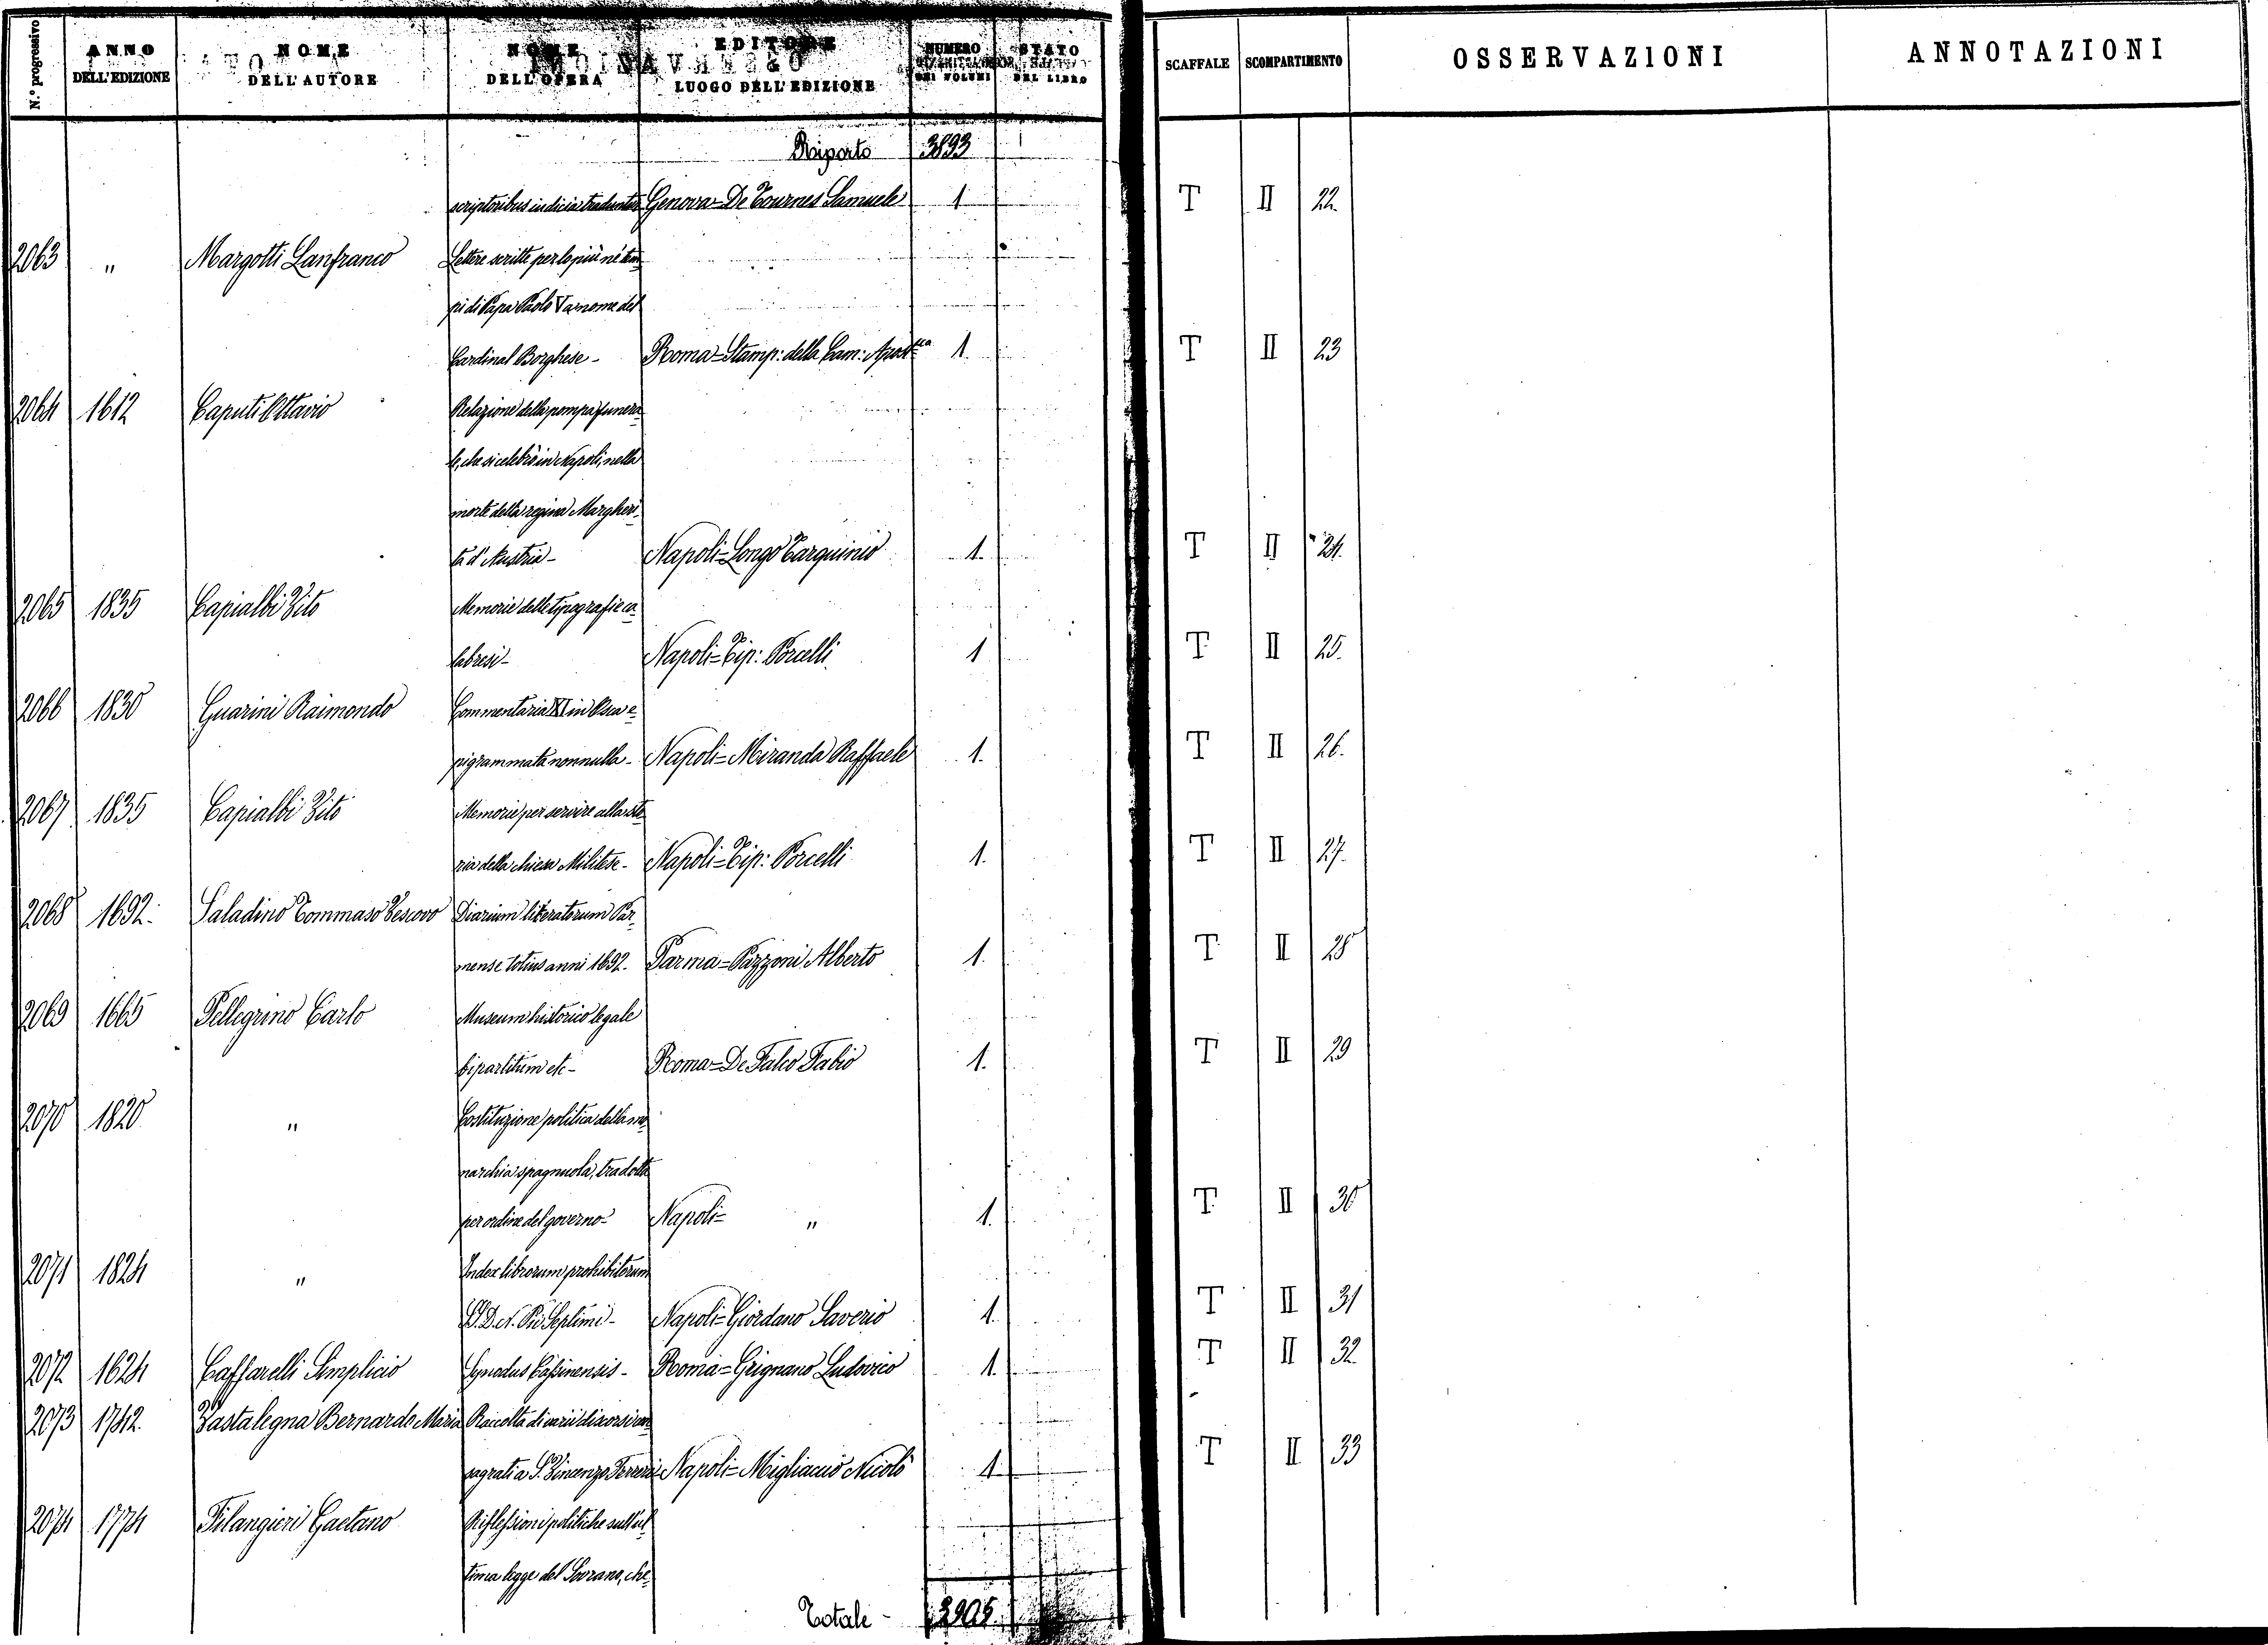 N.° progressivo ANNO DELL'EDIZIONE NOME DELL'AUTORE NOME DELL'OPERA EDITORE E LUOGO DELL'EDIZIONE NUMERO DEI VOLUMI STATO DEL LIBRO SCAFFALE SCOMPARTIMENTO OSSERVAZIONI ANNOTAZIONI
Riporto 3893
scriptoribus indicia traduntur Genova=De Tournes Samuele 1 T II 22.
2063 " Margotti Lanfranco Lettere scritte per lo più ne' tem-
pi di Papa Paolo V a nome del
Cardinal Borghese - Roma=Stamp: della Cam: Apost.ca 1. T II 23
2064 1612 Caputi Ottavio Relazione della pompa funera-
le, che si celebrò in Napoli, nella
morte della regina Margheri-
ta d'Austria - Napoli=Longo Tarquinio 1. T II 24.
2065 1835 Capialbi Vito Memorie delle tipografie ca-
labresi - Napoli=Tip: Porcelli 1 T II 25.
2066 1830 Guarini Raimondo Commentaria XI in Osca e-
pigrammata nonnulla - Napoli=Miranda Raffaele 1. T II 26.
2067 1835 Capialbi Vito Memorie per servire alla sto-
ria della chiesa Militese - Napoli=Tip: Porcelli 1. T II 27.
2068 1692. Saladino Tommaso Vescovo Diarium literatorum Par-
mense totius anni 1692. Parma=Pazzoni Alberto 1. T II 28
2069 1665 Pellegrino Carlo Museum historico legale
bipartitum etc - Roma=De Falco Fabio 1. T II 29
2070 1820 " Costituzione politica della mo-
narchia spagnuola, tradotta
per ordine del governo - Napoli= " 1. T II 30
2071 1824 " Index librorum prohibitorum
S.D.N. Pii Septimi - Napoli=Giordano Saverio 1. T II 31
2072 1624 Caffarelli Simplicio Synodus Cassinensis - Roma=Grignano Ludovico 1. T II 32
2073 1742. Vastalegna Bernardo Maria Raccolta di varii discorsi con-
sagrati a S. Vincenzo Ferreri - Napoli=Migliacci Nicolò 1. T II 33
2074 1774 Filangieri Gaetano Riflessioni politiche sull'ul-
tima legge del Sovrano, che
Totale - 3905